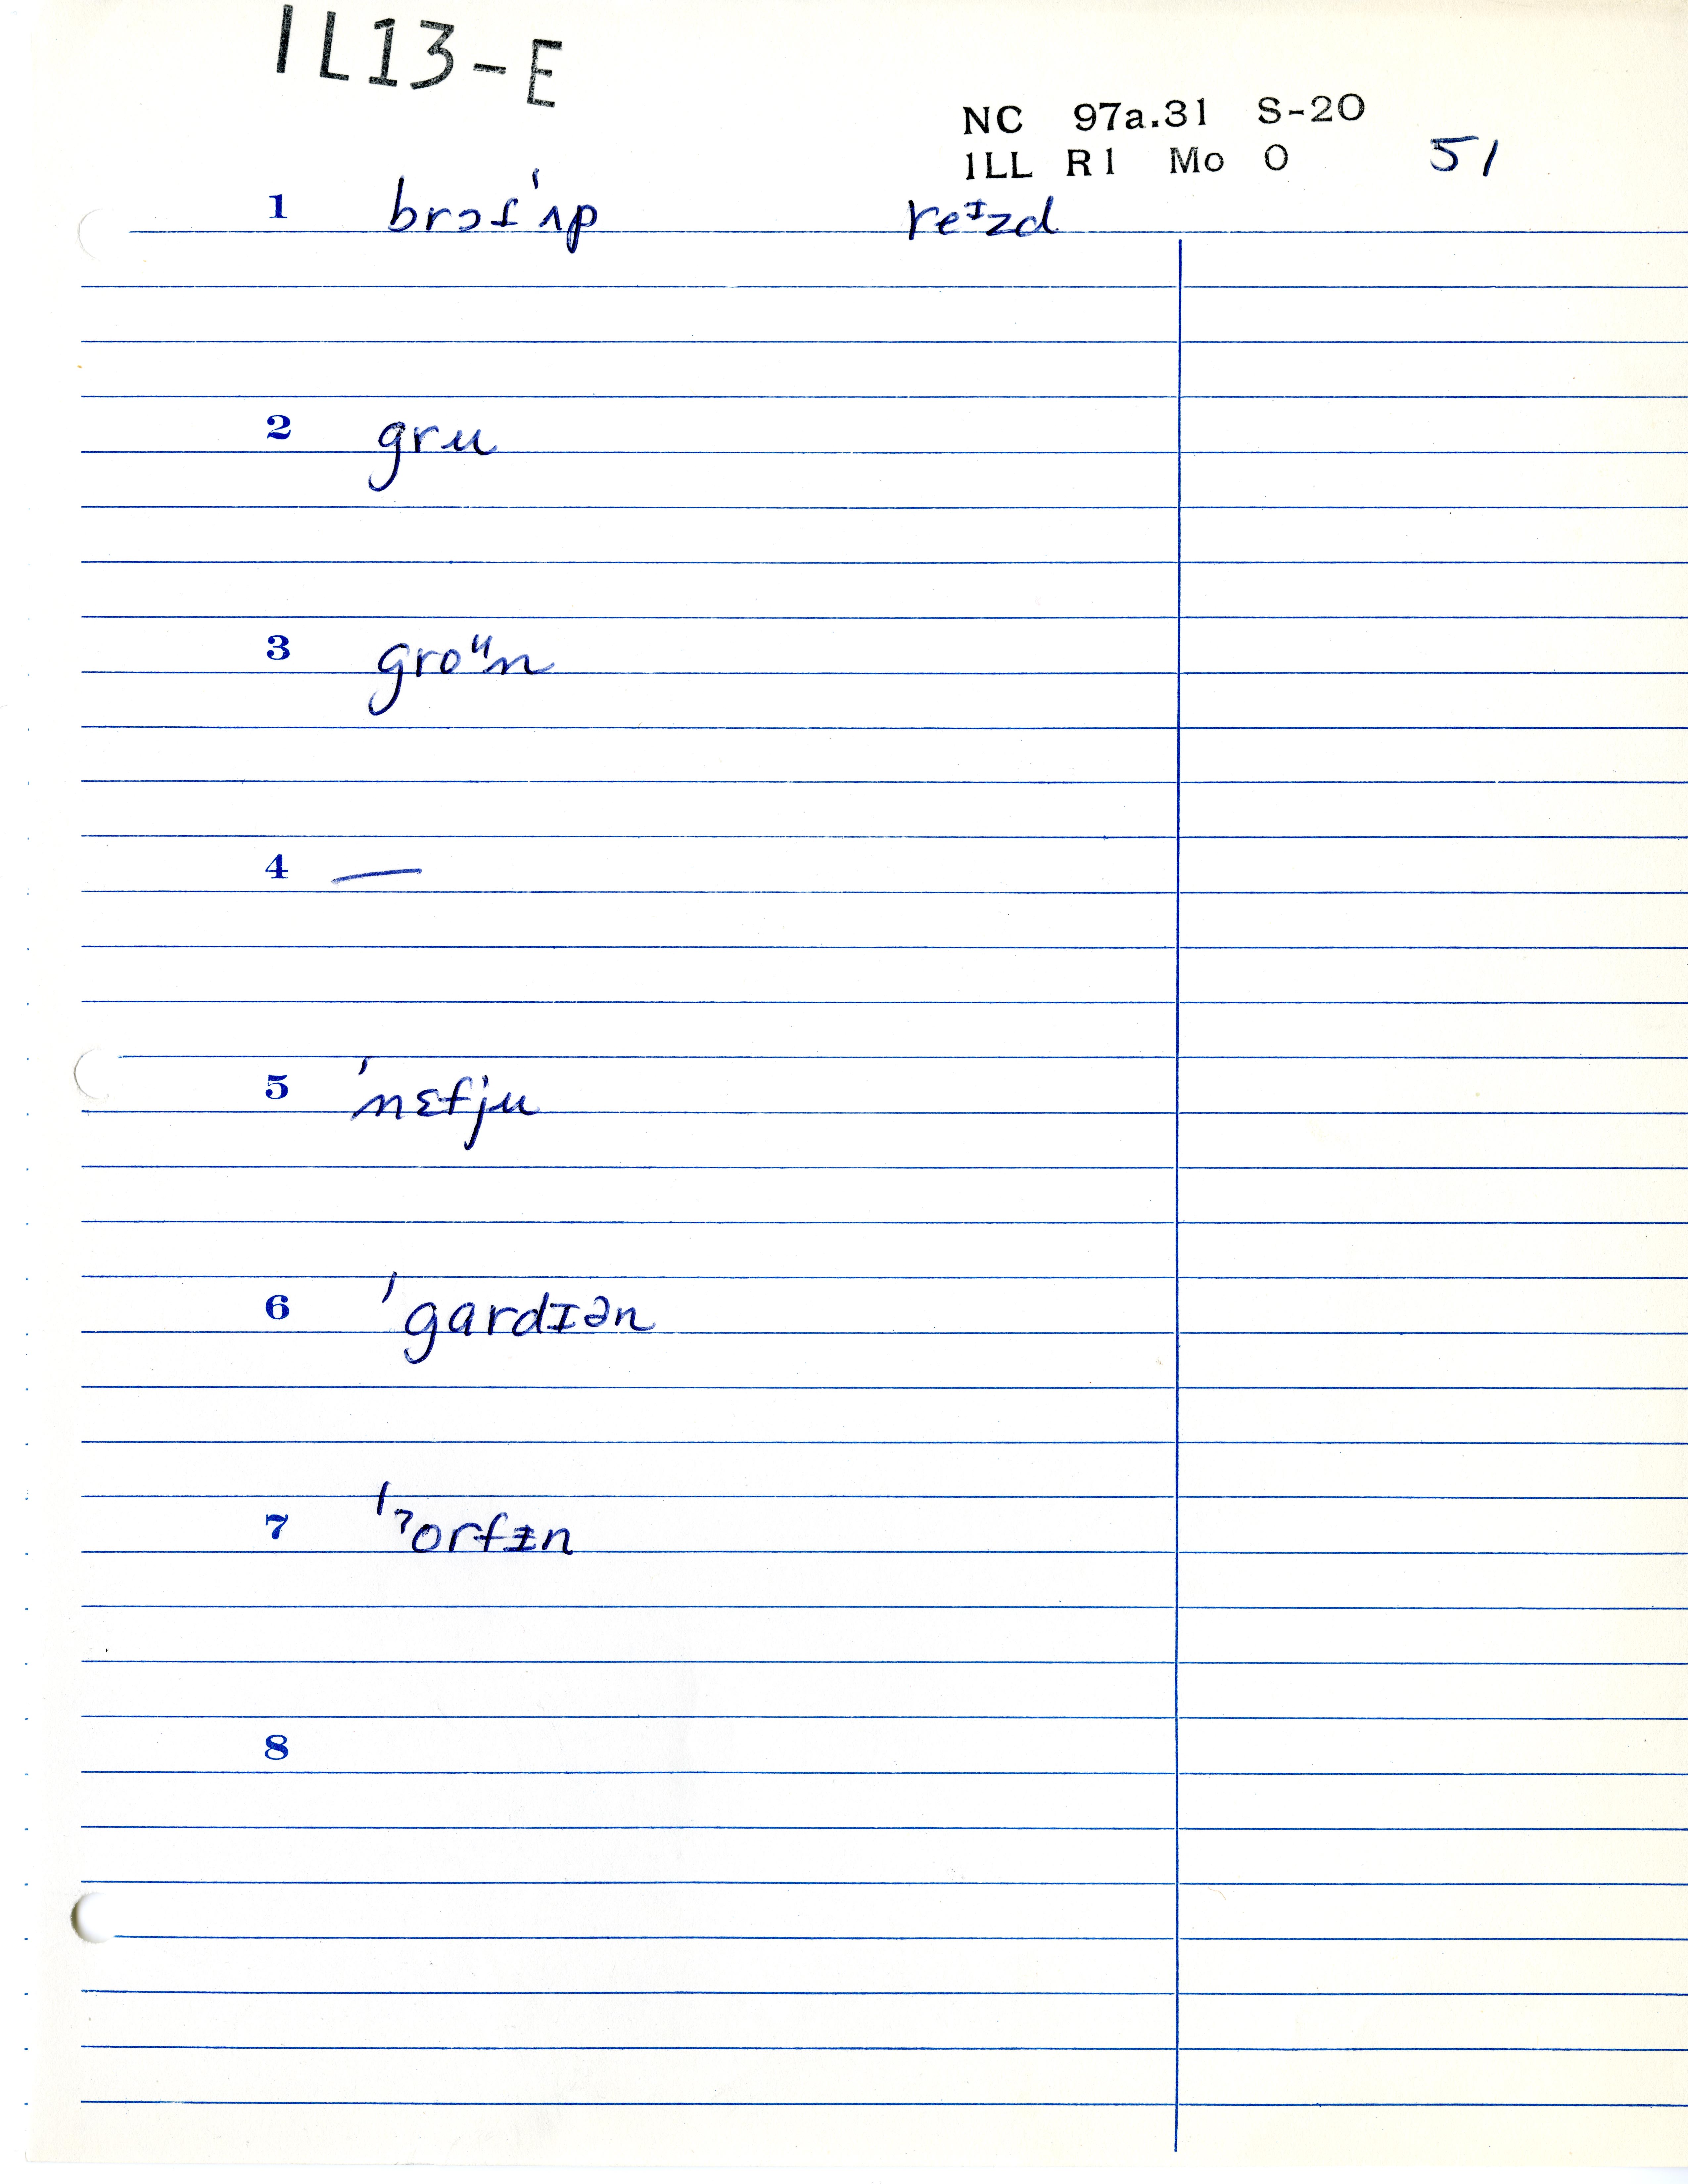 IL13-E
NC 97a.31 S-20
ILL R1 Mo O 51
1 brɔɾˈʌp reᶦzd
2 gru
3 groᶸn
4 —
5 ˈnɛfju
6 ˈgardɪən
7 ˈˀorfɪn
8